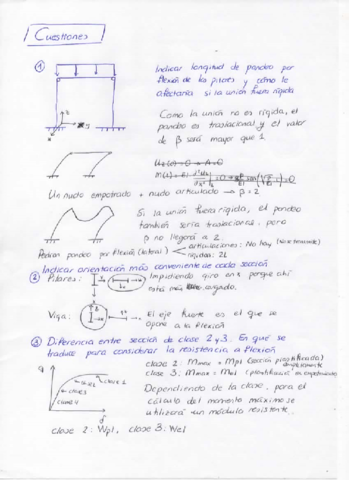 Cuestiones
① Indicar longitud de pandeo por
flexión de los pilares y cómo le
afectaría si la unión fuera rígida
Como la unión no es rígida, el
pandeo es traslacional y el valor
de β será mayor que 1
Un nudo empotrado + nudo articulado → β = 2
Si la unión fuera rígida, el pandeo
también sería traslacional, pero
β no llegará a 2
Pedían pandeo por flexión (lateral)
articulaciones: No hay
rígidas: 2L
② Indicar orientación más conveniente de cada sección
Pilares: I
Impidiendo giro en porque ahí
está más
Viga: I
El eje fuerte es el que se
opone a la flexión
③ Diferencia entre sección de clase 2 y 3. En qué se
traduce para considerar la resistencia a flexión
clase 2: Mmax = Mpl (sección plastificada)
clase 3: Mmax = Mel
Dependiendo de la clase, para el
cálculo del momento máximo se
utilizará un módulo resistente.
clase 2
clase 3
clase 4
clase 2: Wpl, clase 3: Wel